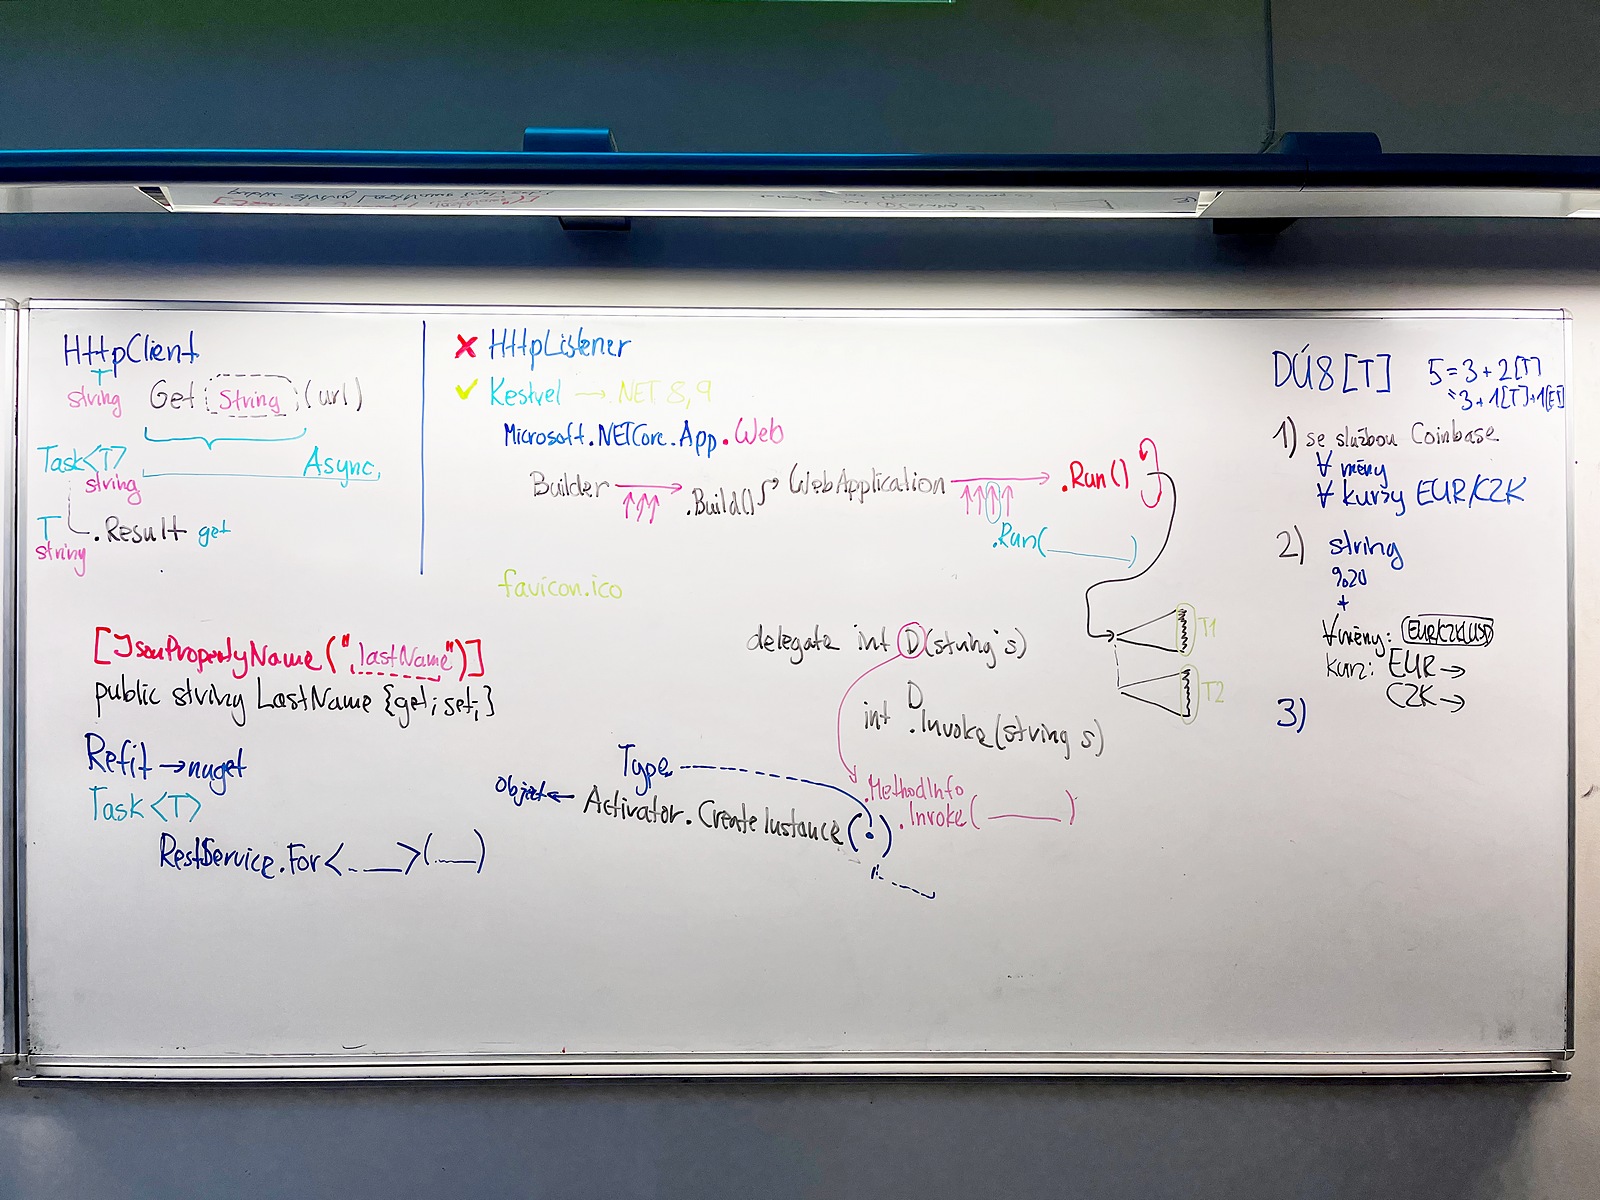 HttpClient
T
string
Get String (url)
Task<T>
string
Async
T
string
.Result get
✗ HttpListener
✓ Kestrel → .NET 8, 9
Microsoft.NETCore.App.Web
Builder → .Build() → WebApplication → .Run()
.Run(____)
favicon.ico
[JsonPropertyName("lastName")]
public string LastName {get; set;}
Refit → nuget
Task<T>
RestService.For<____>(____)
delegate int D(string s)
D
int .Invoke(string s)
T1
T2
Type
Object ← Activator.CreateInstance(•)
.MethodInfo
.Invoke(____)
DÚ8[T]
5 = 3 + 2[T]
= 3 + 1[T] + 1[E]
1) se službou Coinbase
∀ měny
∀ kurzy EUR/CZK
2) string
%20
+
∀ měny: EUR/CZK/USD
kurz: EUR →
CZK →
3)